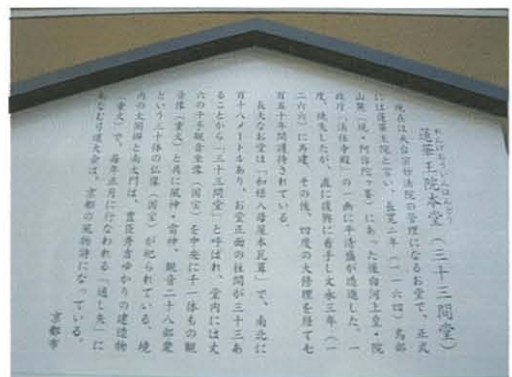 れんげおういんほんどう
蓮華王院本堂（三十三間堂）
現在は天台宗妙法院の管理になるお堂で、正式
には蓮華王院と言い、長寛二年（一一六四）鳥部
山麓（現・阿弥陀ヶ峯）にあった後白河上皇・院
政庁「法住寺殿」の一画に平清盛が造進した。一
度、焼失したが、直に復興に着手し文永三年（一
二六六）に再建、その後、四度の大修理を経て七
百五十年間護持されている。
長大なお堂は「和様入母屋本瓦葺」で、南北に
百十八メートルあり、お堂正面の柱間が三十三あ
ることから「三十三間堂」と呼ばれ、堂内には丈
六の千手観音坐像（国宝）を中央に千一体もの観
音像（重文）と共に風神・雷神、観音二十八部衆
という三十体の仏像（国宝）が祀られている。境
内の太閤塀と南大門は、豊臣秀吉ゆかりの建造物
（重文）で、毎年正月に行なわれる「通し矢」に
ちなむ弓道大会は、京都の風物詩になっている。
京都市